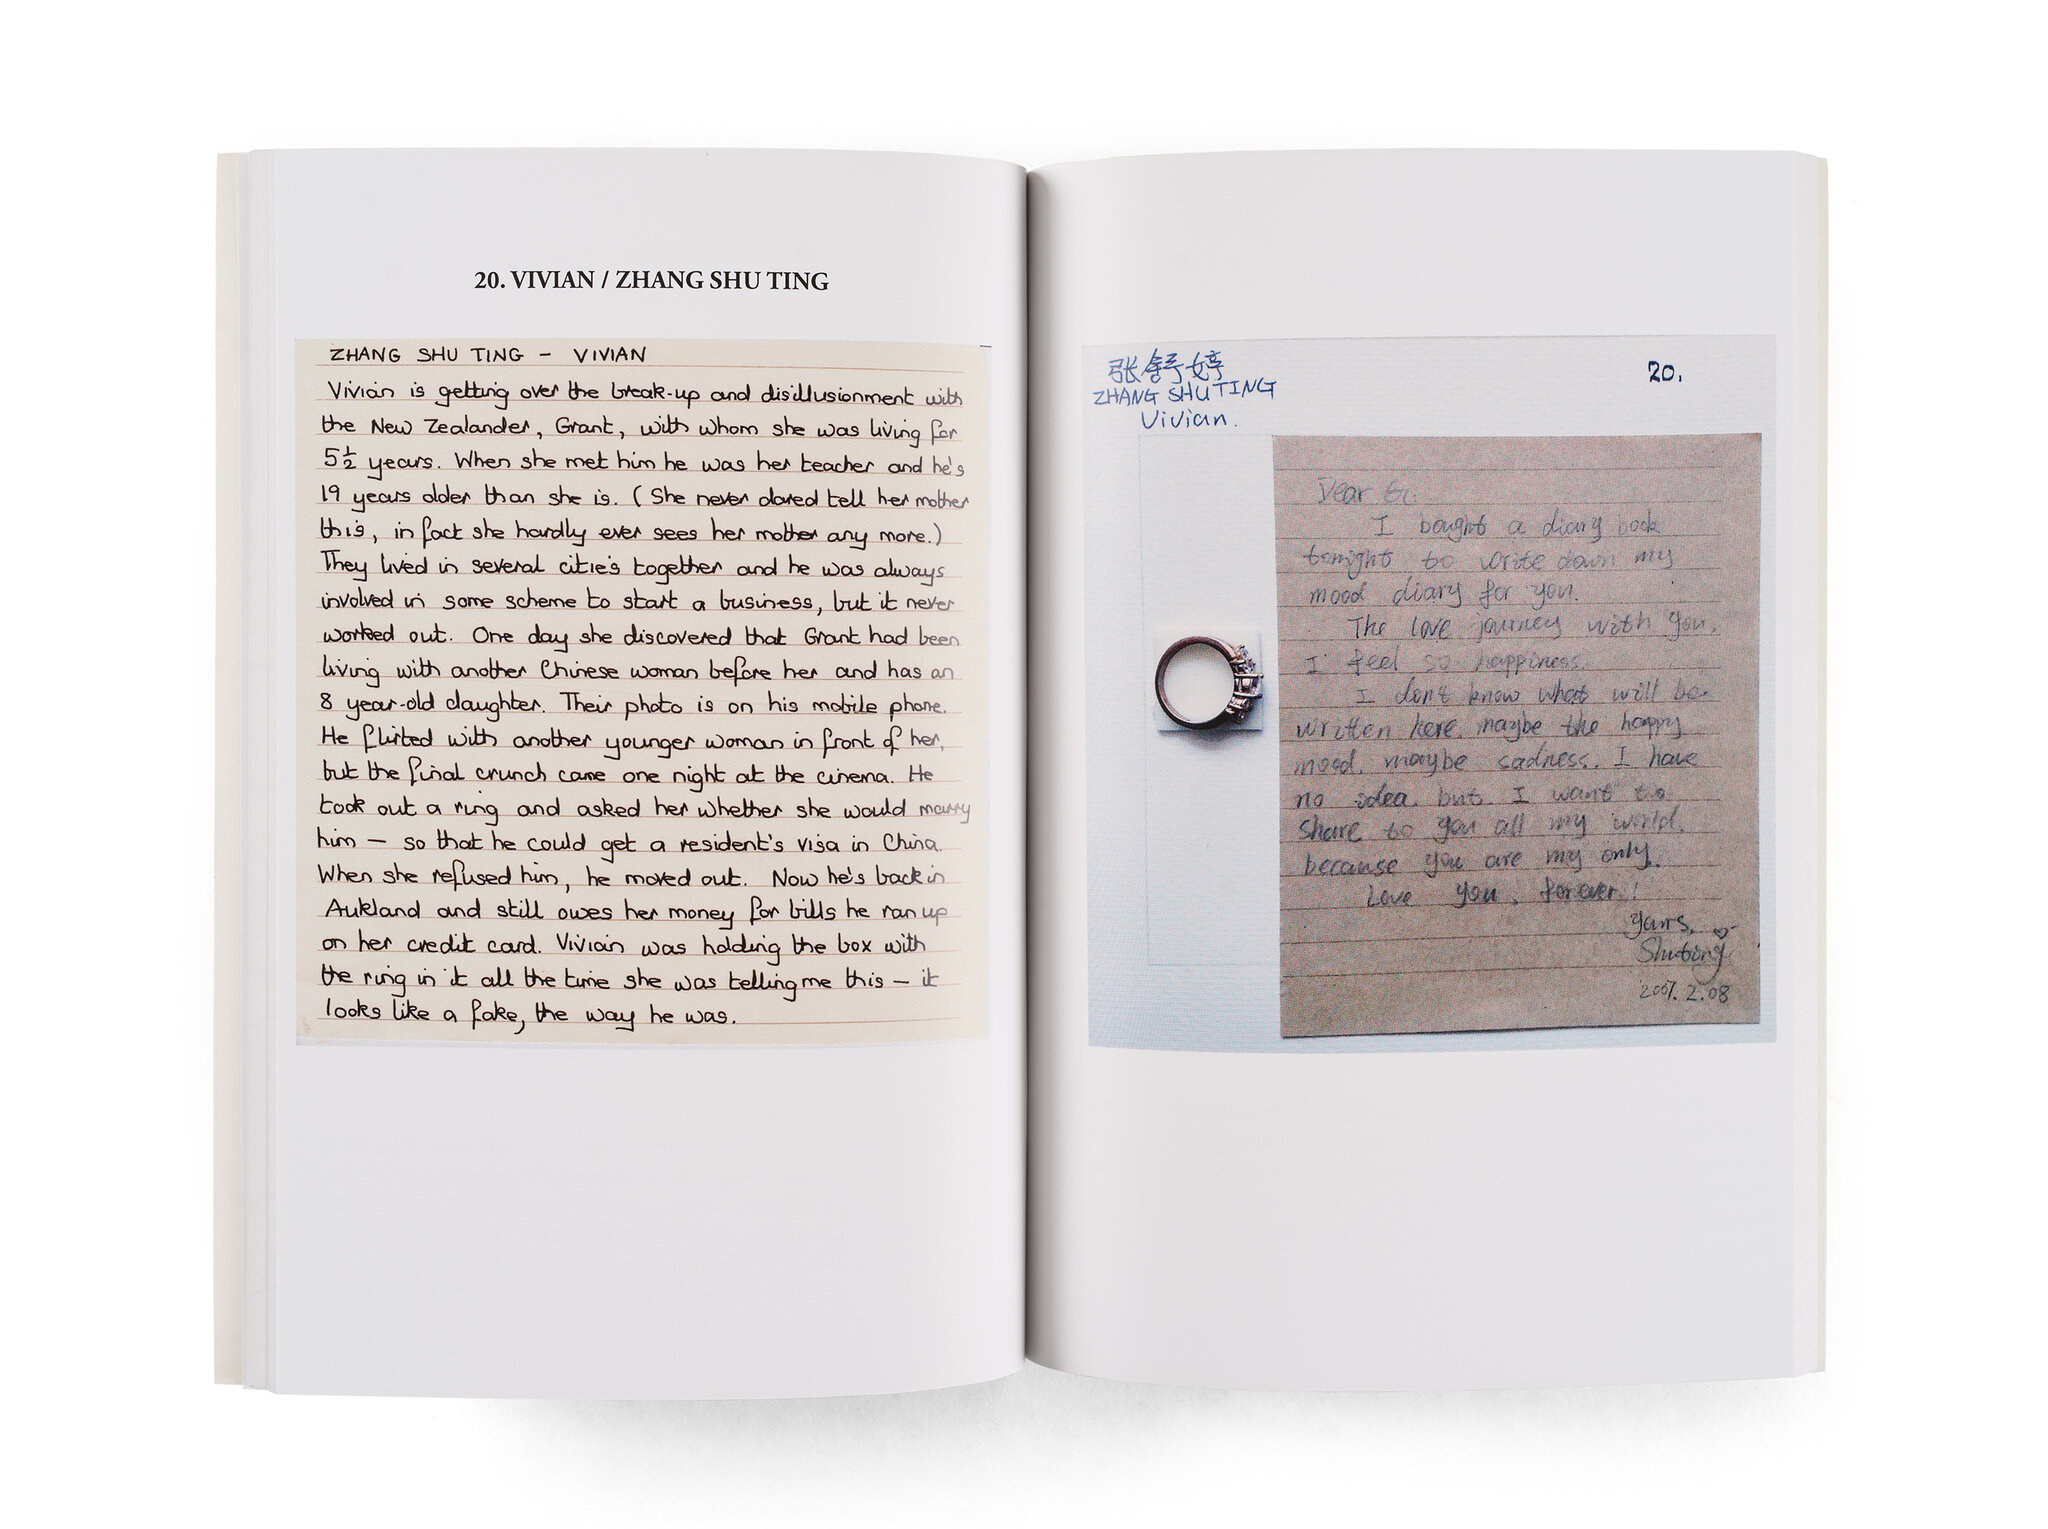 20. VIVIAN / ZHANG SHU TING
ZHANG SHU TING – VIVIAN
Vivian is getting over the break-up and disillusionment with
the New Zealander, Grant, with whom she was living for
5½ years. When she met him he was her teacher and he's
19 years older than she is. (She never dared tell her mother
this, in fact she hardly ever sees her mother any more.)
They lived in several cities together and he was always
involved in some scheme to start a business, but it never
worked out. One day she discovered that Grant had been
living with another Chinese woman before her and has an
8 year-old daughter. Their photo is on his mobile phone.
He flirted with another younger woman in front of her,
but the final crunch came one night at the cinema. He
took out a ring and asked her whether she would marry
him – so that he could get a resident's visa in China.
When she refused him, he moved out. Now he's back in
Aukland and still owes her money for bills he ran up
on her credit card. Vivian was holding the box with
the ring in it all the time she was telling me this – it
looks like a fake, the way he was.
张舒婷
ZHANG SHU TING
Vivian.
20.
Dear G:
I bought a diary book
tonight to write down my
mood diary for you.
The love journey with you,
I feel so happiness.
I dont know what will be
written here. maybe the happy
mood, maybe sadness. I have
no idea. but I want to
share to you all my world.
because you are my only.
Love you, forever!
Yours,
Shuting
2007. 2. 08